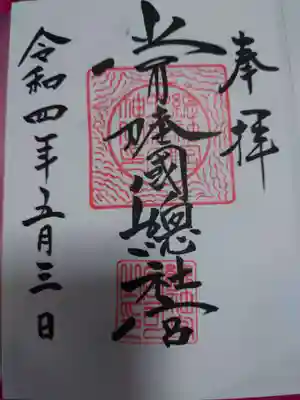 奉拝
常陸國總社宮
令和四年五月三日